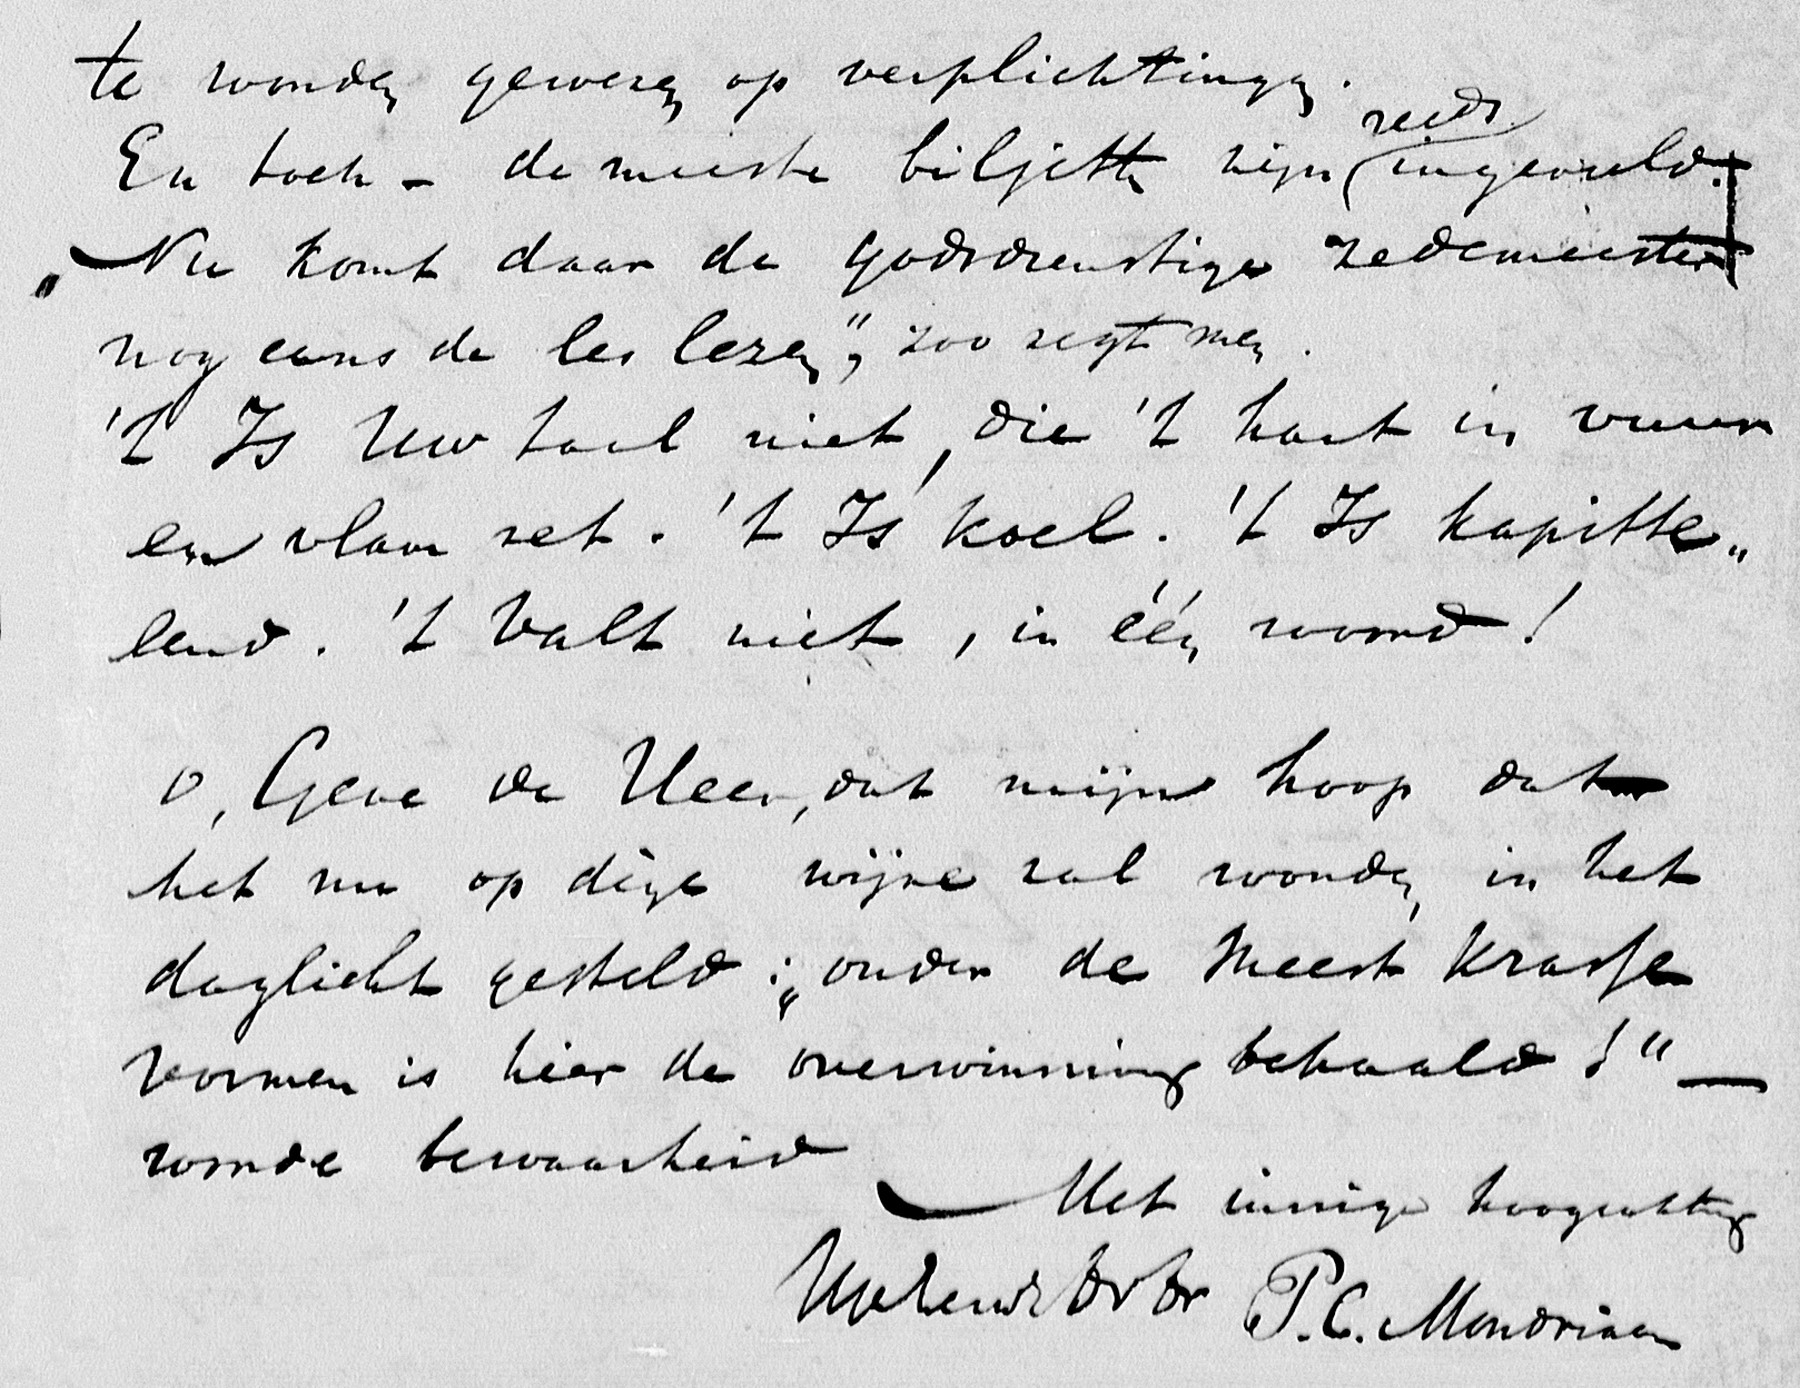 te worden gewezen op verplichtingen.
En toch – de meeste biljetten zijn reeds ingevuld.
„Nu komt daar de godsdienstige zedemeester
nog eens de les lezen", zoo zegt men.
't Is Uw taal niet, die 't hart in vuur
en vlam zet. 't Is koel. 't Is kapitte„
lend. 't Valt niet, in één woord!
O, Geve de Heer, dat mijne hoop dat
het nu op deze wijze zal worden in het
daglicht gesteld: „onder de meest krasse
vormen is hier de overwinning behaald!" —
worde bewaarheid
Met innige hoogachting
Uw heilw. dr. br. P.C. Mondriaan